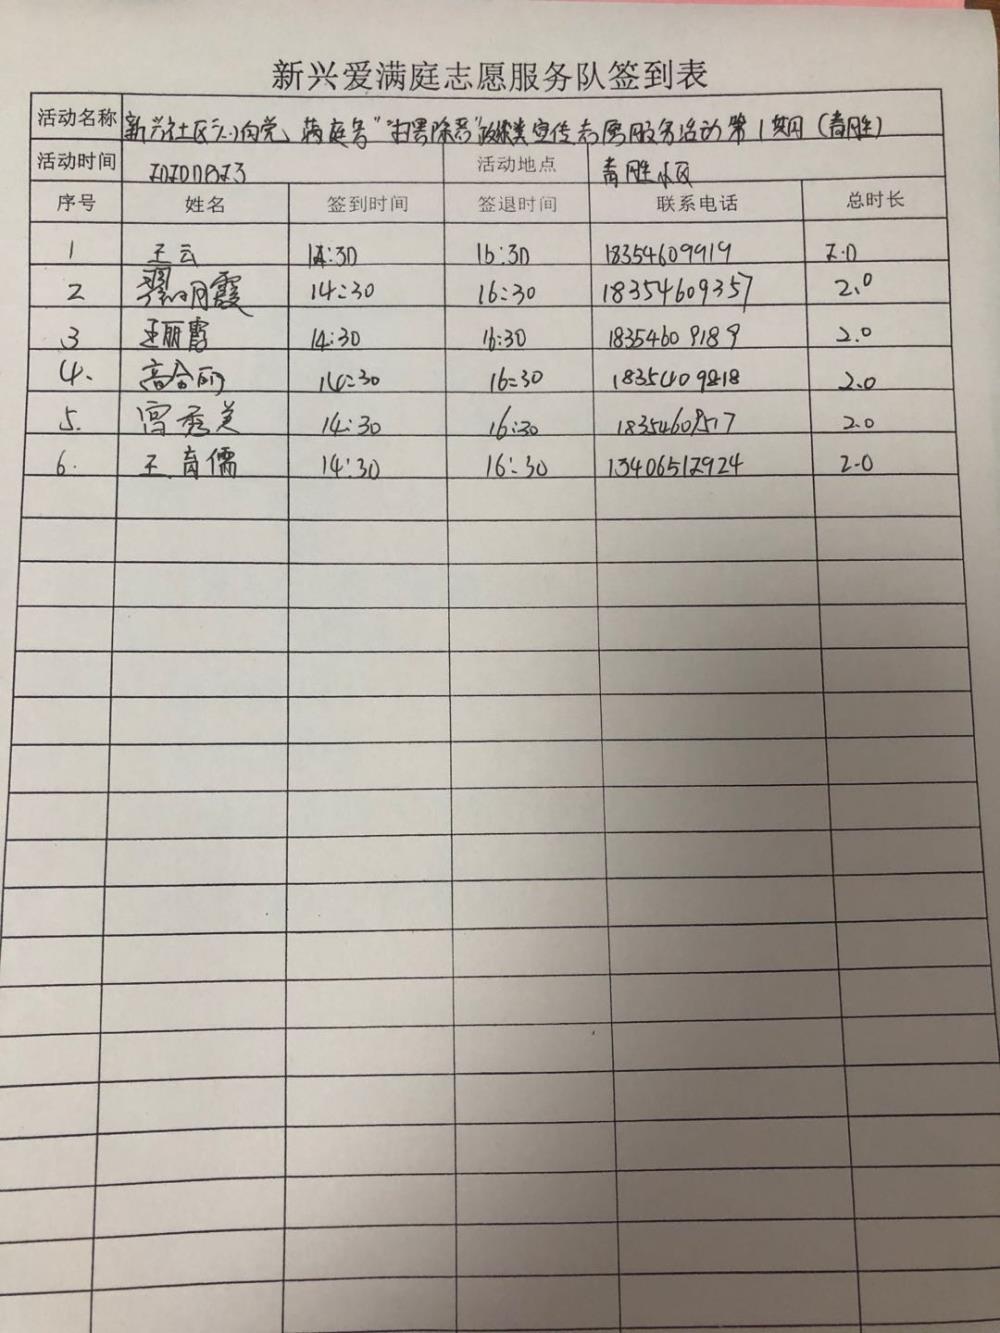 新兴爱满庭志愿服务队签到表
活动名称 新兴社区"心向党、满庭芳""扫黑除恶"政策类宣传志愿服务活动第1期(青胜)
活动时间 20200823 活动地点 青胜小区
序号 姓名 签到时间 签退时间 联系电话 总时长
1 王云 14:30 16:30 18354609919 2.0
2 翟明霞 14:30 16:30 18354609357 2.0
3 王丽霞 14:30 16:30 18354609189 2.0
4. 高会丽 14:30 16:30 2.0
5. 宫秀美 14:30 16:30 2.0
6. 王育儒 14:30 16:30 13406512924 2.0